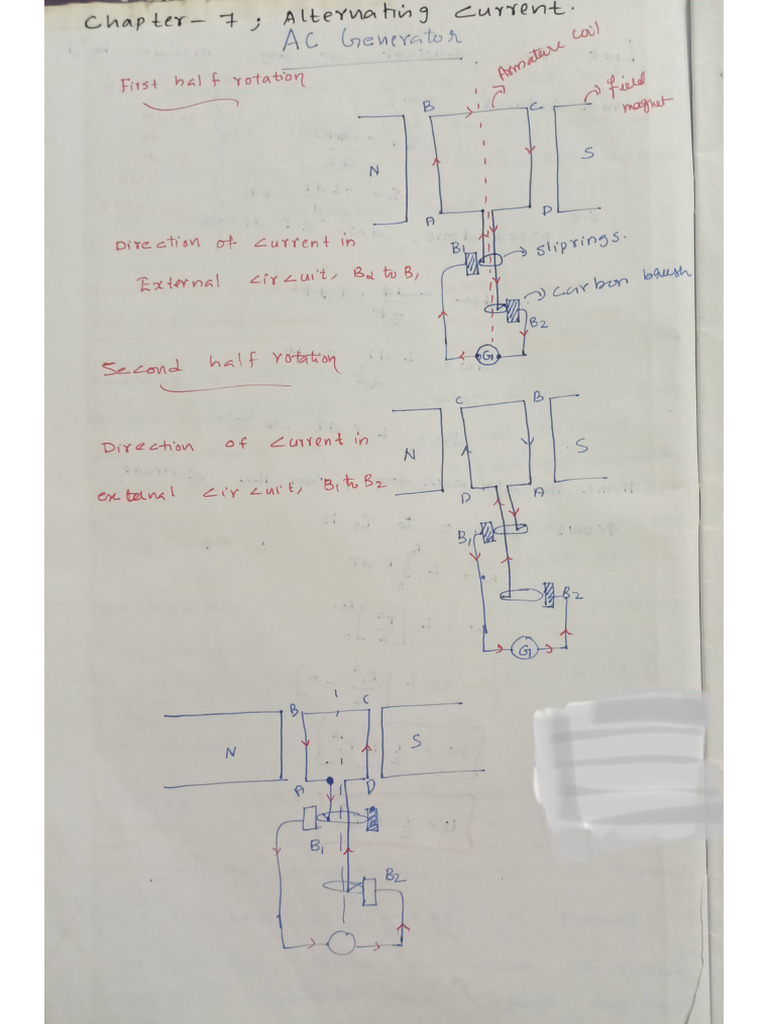 Chapter- 7 ; Alternating Current.
AC Generator
First half rotation
Armature coil
field
magnet
B
C
N
S
A
D
Direction of current in
External circuit, B2 to B1
B1
sliprings.
carbon brush
B2
G
Second half rotation
C
B
N
S
Direction of current in
external circuit, B1 to B2
D
A
B1
B2
G
B
C
N
S
A
D
B1
B2